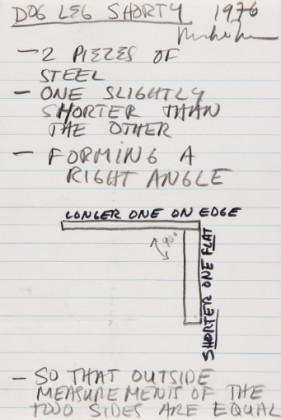 DOG LEG SHORTY 1976
- 2 PIEZES OF
STEEL
- ONE SLIGHTLY
SHORTER THAN
THE OTHER
- FORMING A
RIGHT ANGLE
LONGER ONE ON EDGE
90°
SHORTER ONE FLAT
- SO THAT OUTSIDE
MEASUREMENTS OF THE
TWO SIDES ARE EQUAL